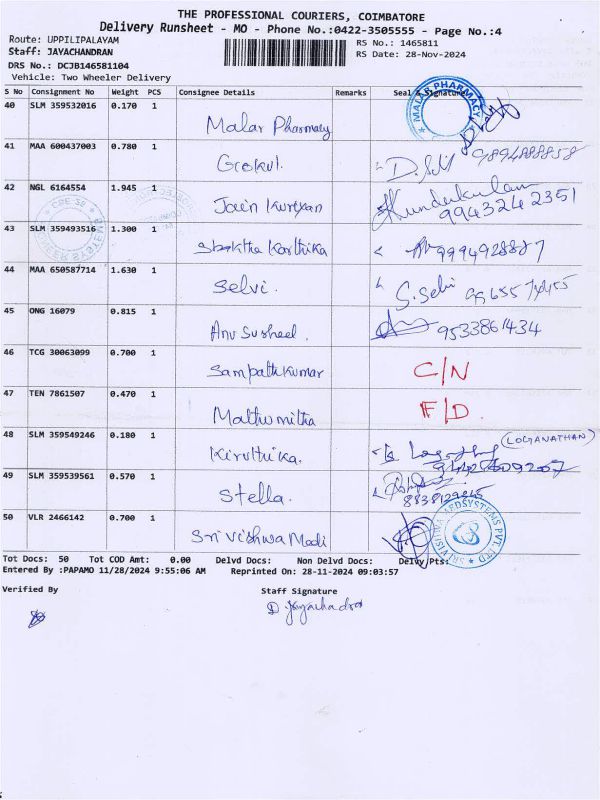 THE PROFESSIONAL COURIERS, COIMBATORE
Delivery Runsheet - MO - Phone No.:0422-3505555 - Page No.:4
Route: UPPILIPALAYAM
RS No.: 1465811
Staff: JAYACHANDRAN
RS Date: 28-Nov-2024
DRS No.: DCJB146581104
Vehicle: Two Wheeler Delivery
S No Consignment No Weight PCS Consignee Details Remarks Seal & Signature
40 SLM 359532016 0.170 1
Malar Pharmacy
MALAR PHARMACY
41 MAA 600437003 0.780 1
Gokul. 9894888858
42 NGL 6164554 1.945 1
Jain Kurtxan Kundukulam
9943242351
43 SLM 359493516 1.300 1
Shaktha Karthika 9994928887
44 MAA 650587714 1.630 1
Selvi. S. Selvi
45 ONG 16079 0.815 1
Anu Susheel. 9533861434
46 TCG 30063099 0.700 1
Sampathkumar C/N
47 TEN 7861507 0.470 1
Mathumitha F/D.
48 SLM 359549246 0.180 1
(LOGANATHAN)
Kiruthika.
49 SLM 359539561 0.570 1
Stella.
50 VLR 2466142 0.700 1
Sri Vishwa Medi
SRI VISHWA MEDSYSTEMS PVT. LTD
Tot Docs: 50 Tot COD Amt: 0.00 Delvd Docs: Non Delvd Docs: Delvy/Pts:
Entered By :PAPAMO 11/28/2024 9:55:06 AM Reprinted On: 28-11-2024 09:03:57
Verified By Staff Signature
D. Jayachadra